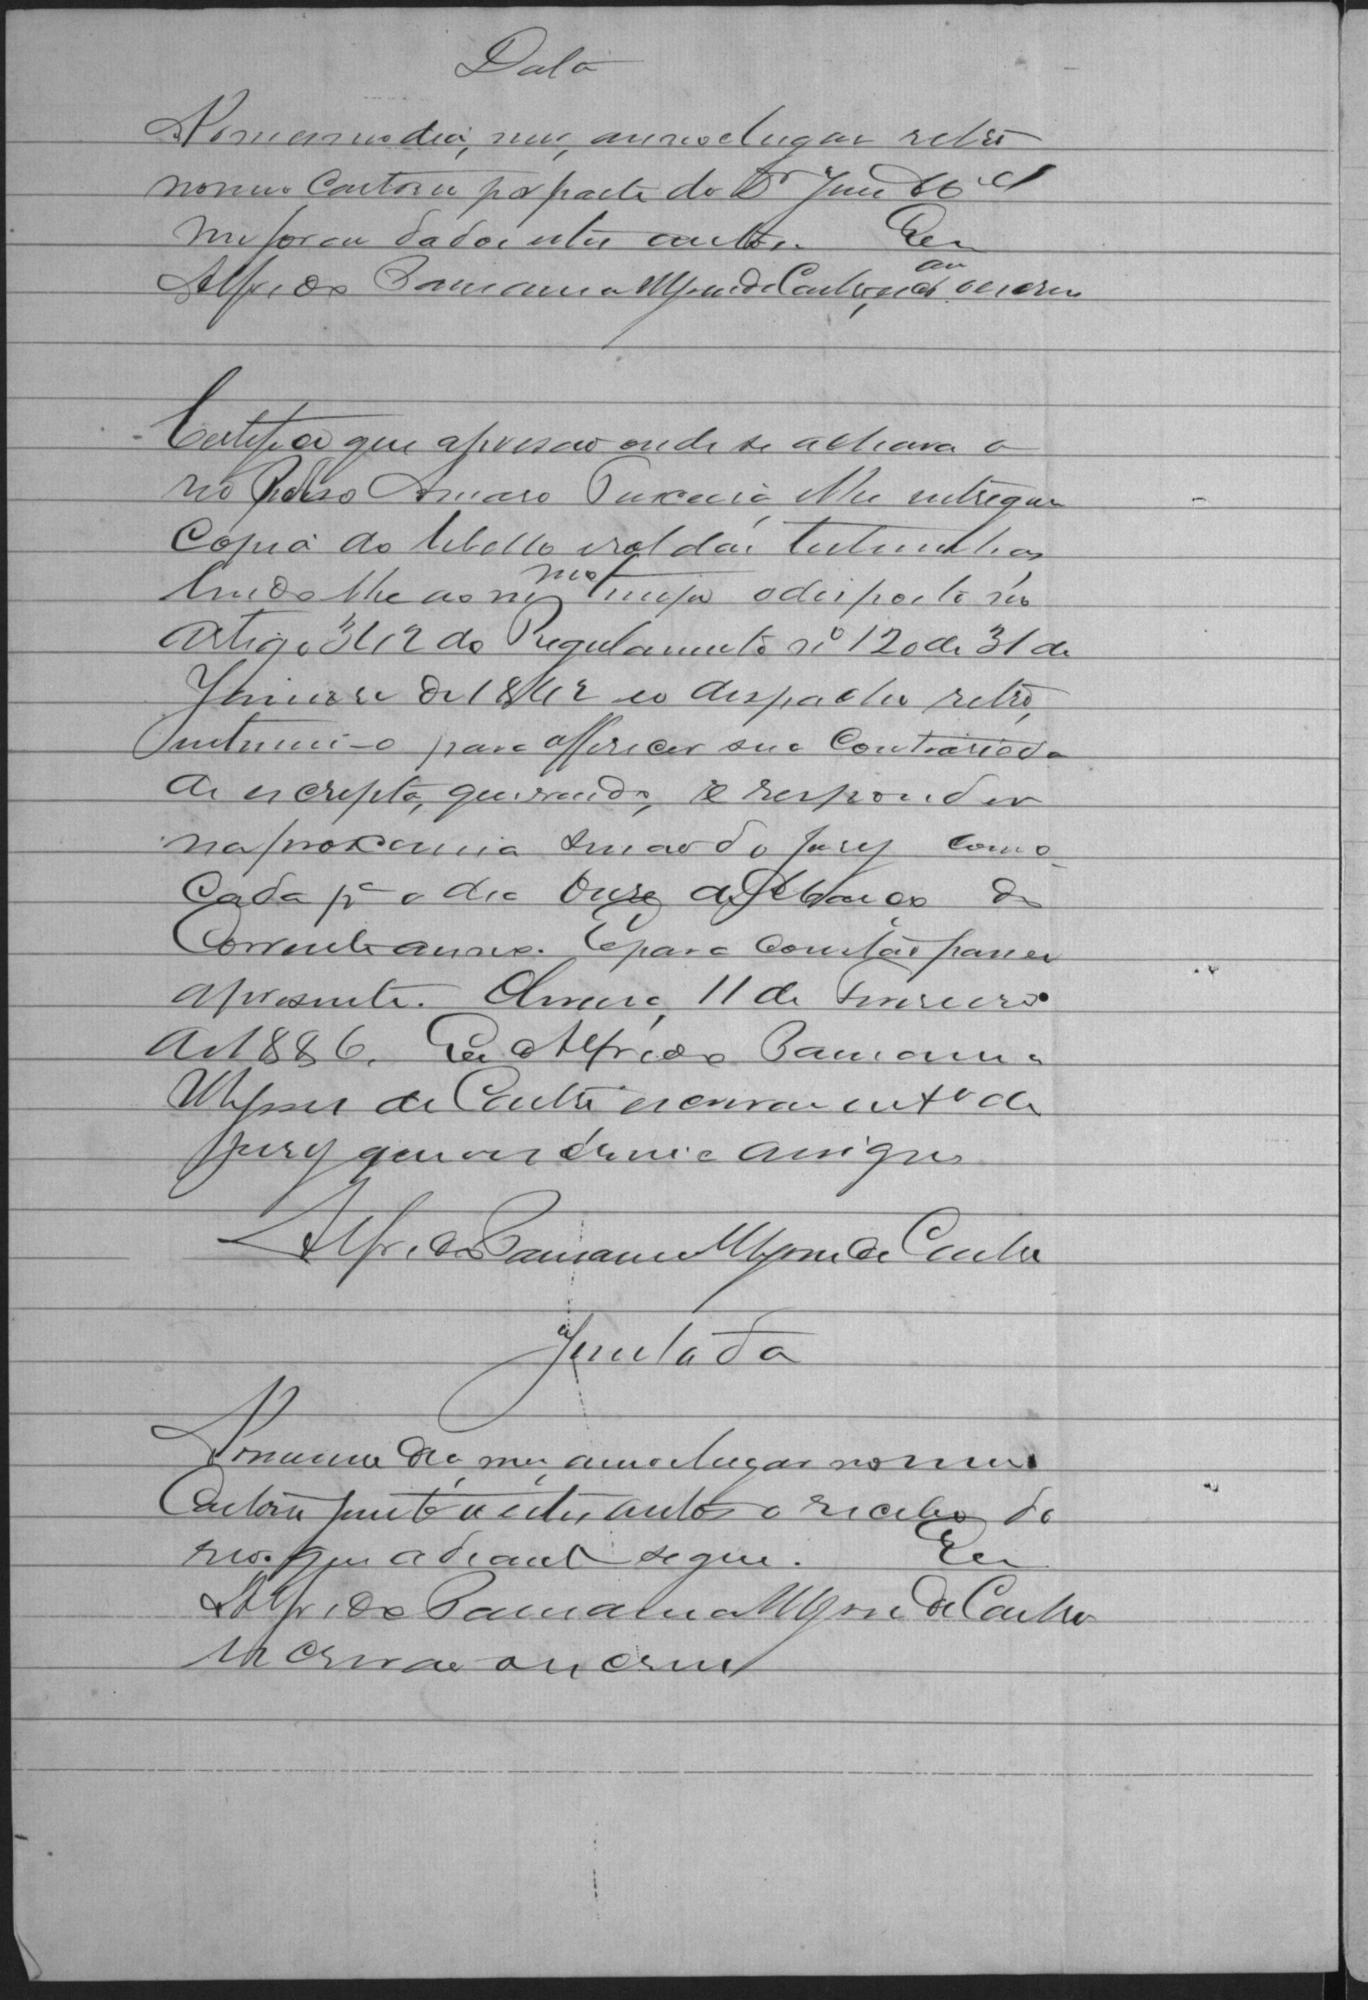 Data
No mesmo dia, mez, anno e lugar retro
no meu Cartorio por parte do Dr Juiz
me forão dados estes autos. Eu
Alfredo Ulysses de Castro, escrivão o escrevi
Certifico que a prisão onde se achava o
réo Pedro Amaro lhe entreguei
Copia do libello e rol das testemunhas
lendo lhe ao mesmo tempo o disposto no
artigo 342 do Regulamento nº 120 de 31 de
Janeiro de 1842 e o despacho retro,
intimei-o para offerecer sua Contrarieda
de escripta, querendo, e responder
na proxima sessão do Jury convo-
cada pª o dia onze de Março do
Corrente anno. E para constar passei
a presente. 11 de Fevereiro
de 1886. Eu Alfredo
Ulysses de Castro escrivão intº do
Jury que escrevi e assigno
Alfredo Ulysses de Castro
Juntada
No mesmo dia, mez, anno e lugar no meu
Cartorio junto a estes autos o recibo do
reo que adiante segue. Eu
Alfredo Ulysses de Castro
escrivão o escrevi